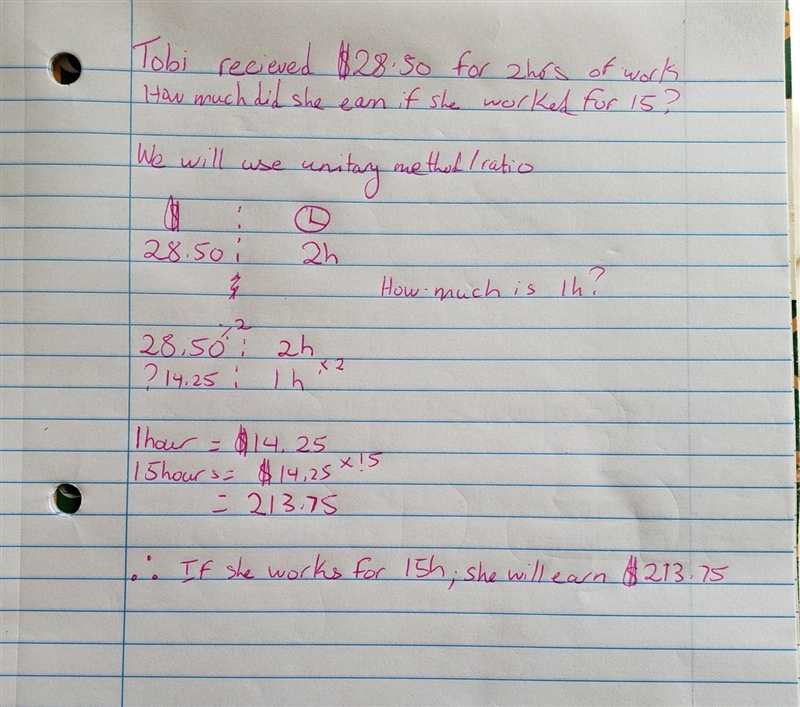 Tobi recieved $28.50 for 2hrs of work
How much did she earn if she worked for 15?
We will use unitary method/ratio
$ :
28.50 : 2h
How much is 1h?
28.50 ÷2 : 2h
? 14.25 : 1h ×2
1hour = $14.25
15hours = $14.25 ×15
= 213.75
∴ If she works for 15h, she will earn $213.75